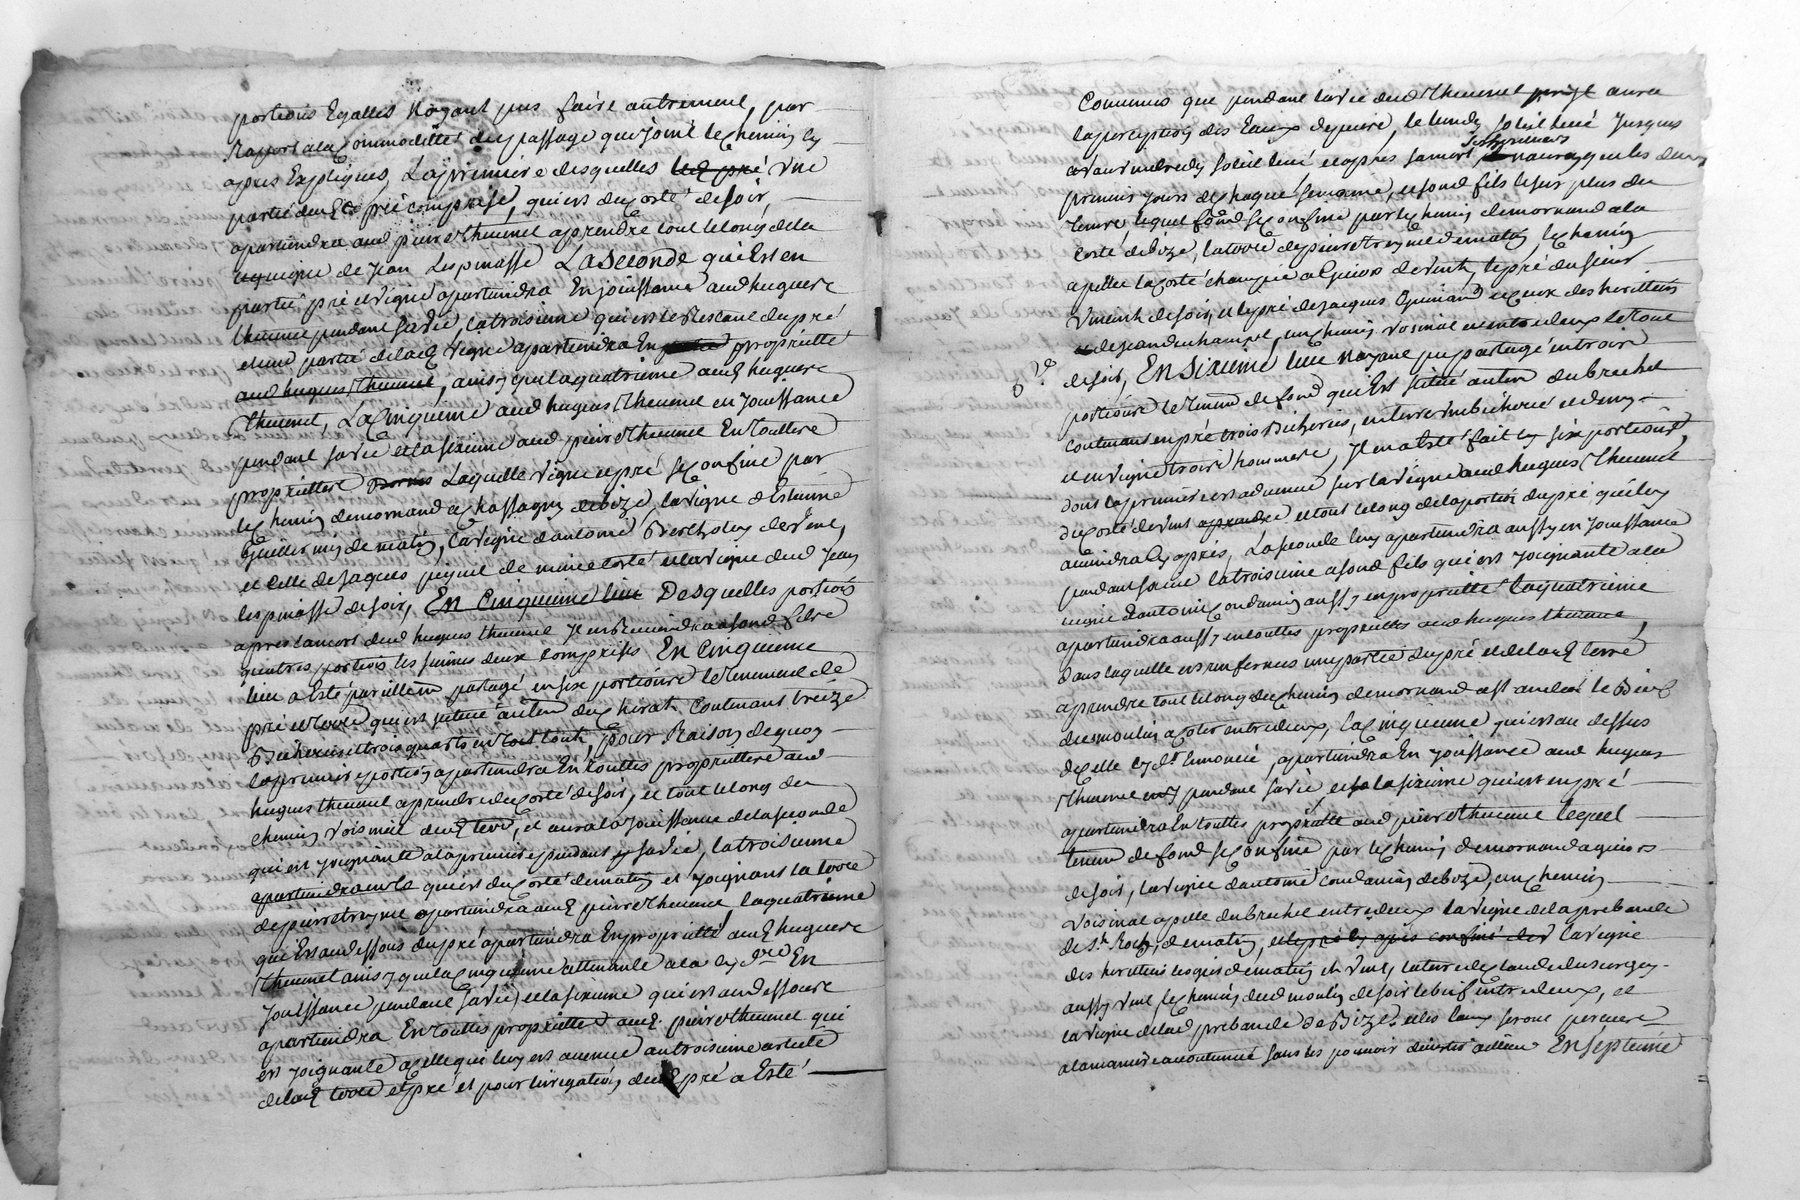 portions Egalles Nayant pus faire autrement, par
Raport ala Commoditté du passage qui joint le chemin cy
apres Expliques, La premiere desquelles led pré une
partie dud pré comprise, qui est du Costé de soir,
apartiendra aud pierre thevenet aprendre tout le long de la
vigne de Jean Lespinasse La seconde qui Est en
partie pré et vigne apartiendra En jouissance aud hugues
thevenet pendant sa vie, la troisieme qui est le Restant du pré
et une partie de lad vigne apartiendra En propriette
aud hugues thevenet, ainsy que la quatrieme aud hugues
thevenet, La Cinquieme aud hugues thevenet en jouissance
pendant sa vie et la sixieme aud pierre thevenet En toutte
propriettere Laquelle vigne et pré se Confine par
le chemin de mornand a chassagny de bize, la vigne d'Estienne
de matin, la vigne d'antoine Bertholey de vent,
et Celle de Jaques pignol de mesme costé et la vigne dud Jean
lespinasse de soir, En Cinquieme lieu Desquelles portions
apres la mort dud hugues thevenet il en Reviendra a son d fils
quatres portions les susnommes deux Comprises En Cinquieme
lieu a Esté pareillem partagé en six portions le tenement de
pré et terre qui est situé au ten du chirat, Contenant treize
Bicherees et trois quarts en tout, pour Raison de quoy
la premiere portion apartiendra En touttes propriettere aud
hugues thevenet aprendre du Costé de soir, et tout le long du
chemin voisinal dud terre, et aura la jouissance de la seconde
qui est joignante a la premiere pendant sa vie, la troisieme
apartiendra qui est du Costé de matin et joignant la terre
de pierre apartiendra aud pierre thevenet, la quatrieme
qui Est au dessous du pré apartiendra En proprieté aud hugues
thevenet ainsy que la Cinquieme attenante a la En
jouissance pendant sa vie, et la sixieme qui est au dessous
apartiendra En touttes propriettes aud pierre thevenet qui
est joignante a Celle qui luy est avenue au troisieme article
de lad terre et pré et pour lirrigation dud pré a Esté
Convenus que pendant la vie dud thevenet aura
la perception des Eaux de pierre, le lundy soleil levé jusques
au vendredy soleil levé et apres sa mort naura que les deux
premiers jours de chaque semaine, et son d fils le surplus du
tems, lequel fond se Confine par le chemin de mornand a la
Coste de bize, la terre de pierre de matin, le chemin
apellee la Costé champié a Givors de vent, le pré du sieur
Vincent de soir, et le pré de Jacques et Ceux des heritiers
de Jean duchampt, un chemin voisinal entre deux le tout
de soir, En sixieme lieu Nayant pu partagé en trois
portions le tenem de fond qui Est situé au ten du brechet
Contenant en pré trois Bicherées, en terre une bicherée et demy
et en vigne trois hommeé, il en a Esté fait les six portions,
dont la premiere est advenue sur la vigne aud hugues thevenet
du Costé de vent et tout le long de la portion du pré qui luy
aviendra Cy apres, La seconde luy apartiendra aussy en jouissance
pendant sa vie la troisieme a son d fils qui est joignante a la
vigne d'antoine Condamin aussy en propriette la quatrieme
apartiendra aussy en touttes propriettes aud hugues thevenet,
dans laquelle est renfermée une partie du pré et de lad terre
aprendre tout le long du chemin de mornand le Bief
du moulin a coter entre deux, la Cinquieme qui est au dessus
de Celle Enoncée, apartiendra En jouissance aud hugues
thevenet pendant sa vie et la sixieme qui est en pré
apartiendra En touttes propriette aud pierre thevenet lequel
tenem de fond se Confine par le chemin de mornand a givors
de soir, la vigne d'antoine Condamin de bize, un chemin
voisinal apellé du brechet entre deux la vigne de la prebande
de St Roch, de matin, et le pré cy apres confiné des la vigne
des heritiers de matin et vent, la terre de
aussy vent, le chemin dud moulin de soir le bief entre deux, et
la vigne de lad prebande de Bize, et les Eaux seront
a la maniere accoutumée sans les pouvoir divertir ailleurs En septieme